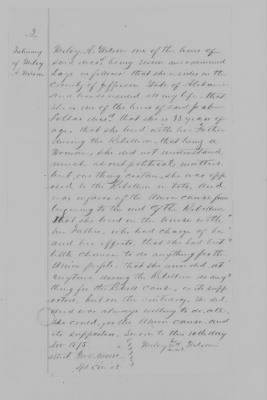 2
Testimony
of Wiley
A. Wilson
Wiley A. Wilson one of the heirs of
said decd. being sworn and examined
says as follows: that she resides in the
County of Jefferson State of Alabama
and has resided all my life, that
she is one of the heirs of said
decd. that she is 33 years of
age, that she lived with her Father
during the Rebellion, that being a
Woman, she did not understand
much about political matters
but, one thing certain, she was opp
osed to the Rebellion in toto, and
was in favor of the Union cause from
beginning to the end of the Rebellion
That she lived in the house with
her Father, who had charge of her
and her effects, that she had but
little chance to do anything for the
Union people, that she did not at
anytime during the Rebellion do any
thing for the Rebel cause, or its supp
orters, but on the contrary, she did,
and was always willing to do, all
she could, for the Union cause, and
its supporters. Sworn to this 10th day
Wiley A. Wilson
attest